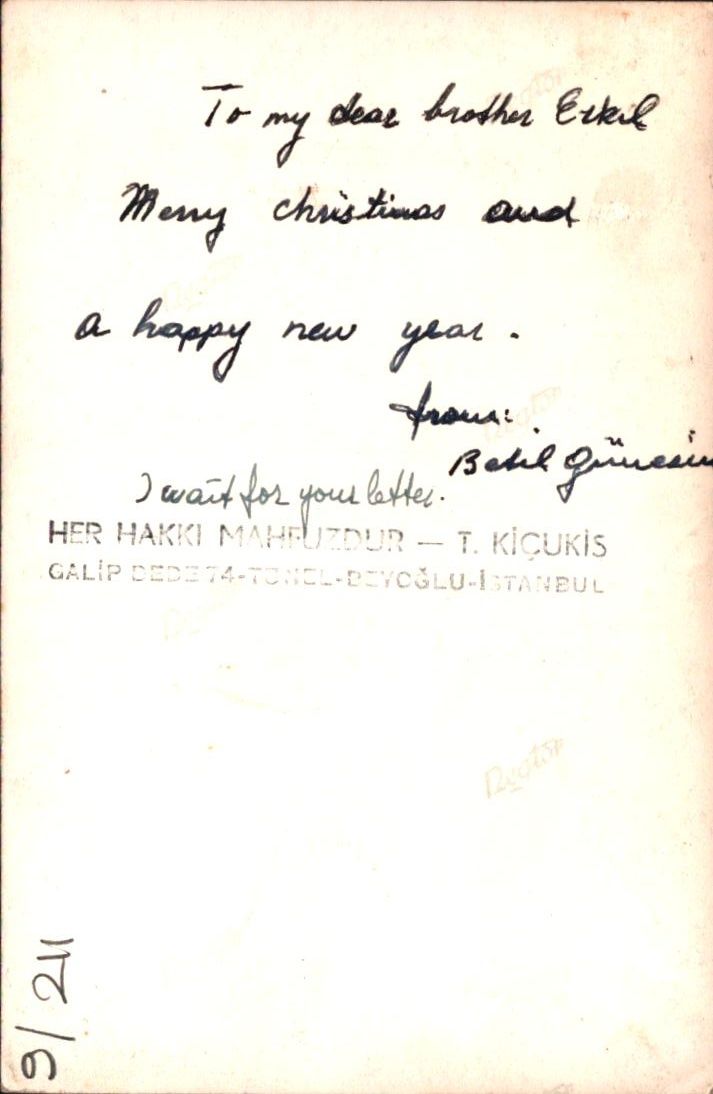 To my dear brother Erkil
Merry christmas and
a happy new year.
from:
Betil
I wait for your letter.
HER HAKKI MAHFUZDUR — T. KİÇUKİS
GALİP DEDE 74-TÜNEL-BEYOĞLU-İSTANBUL
9/211